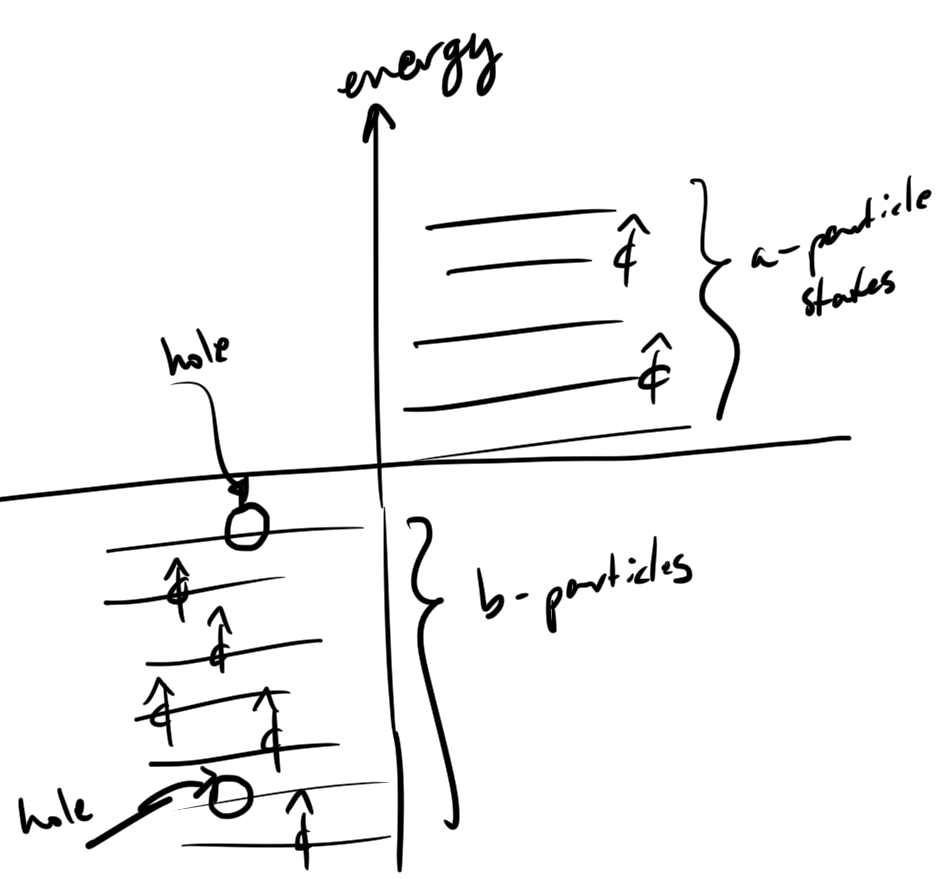 energy
a-particle
states
hole
b-particles
hole